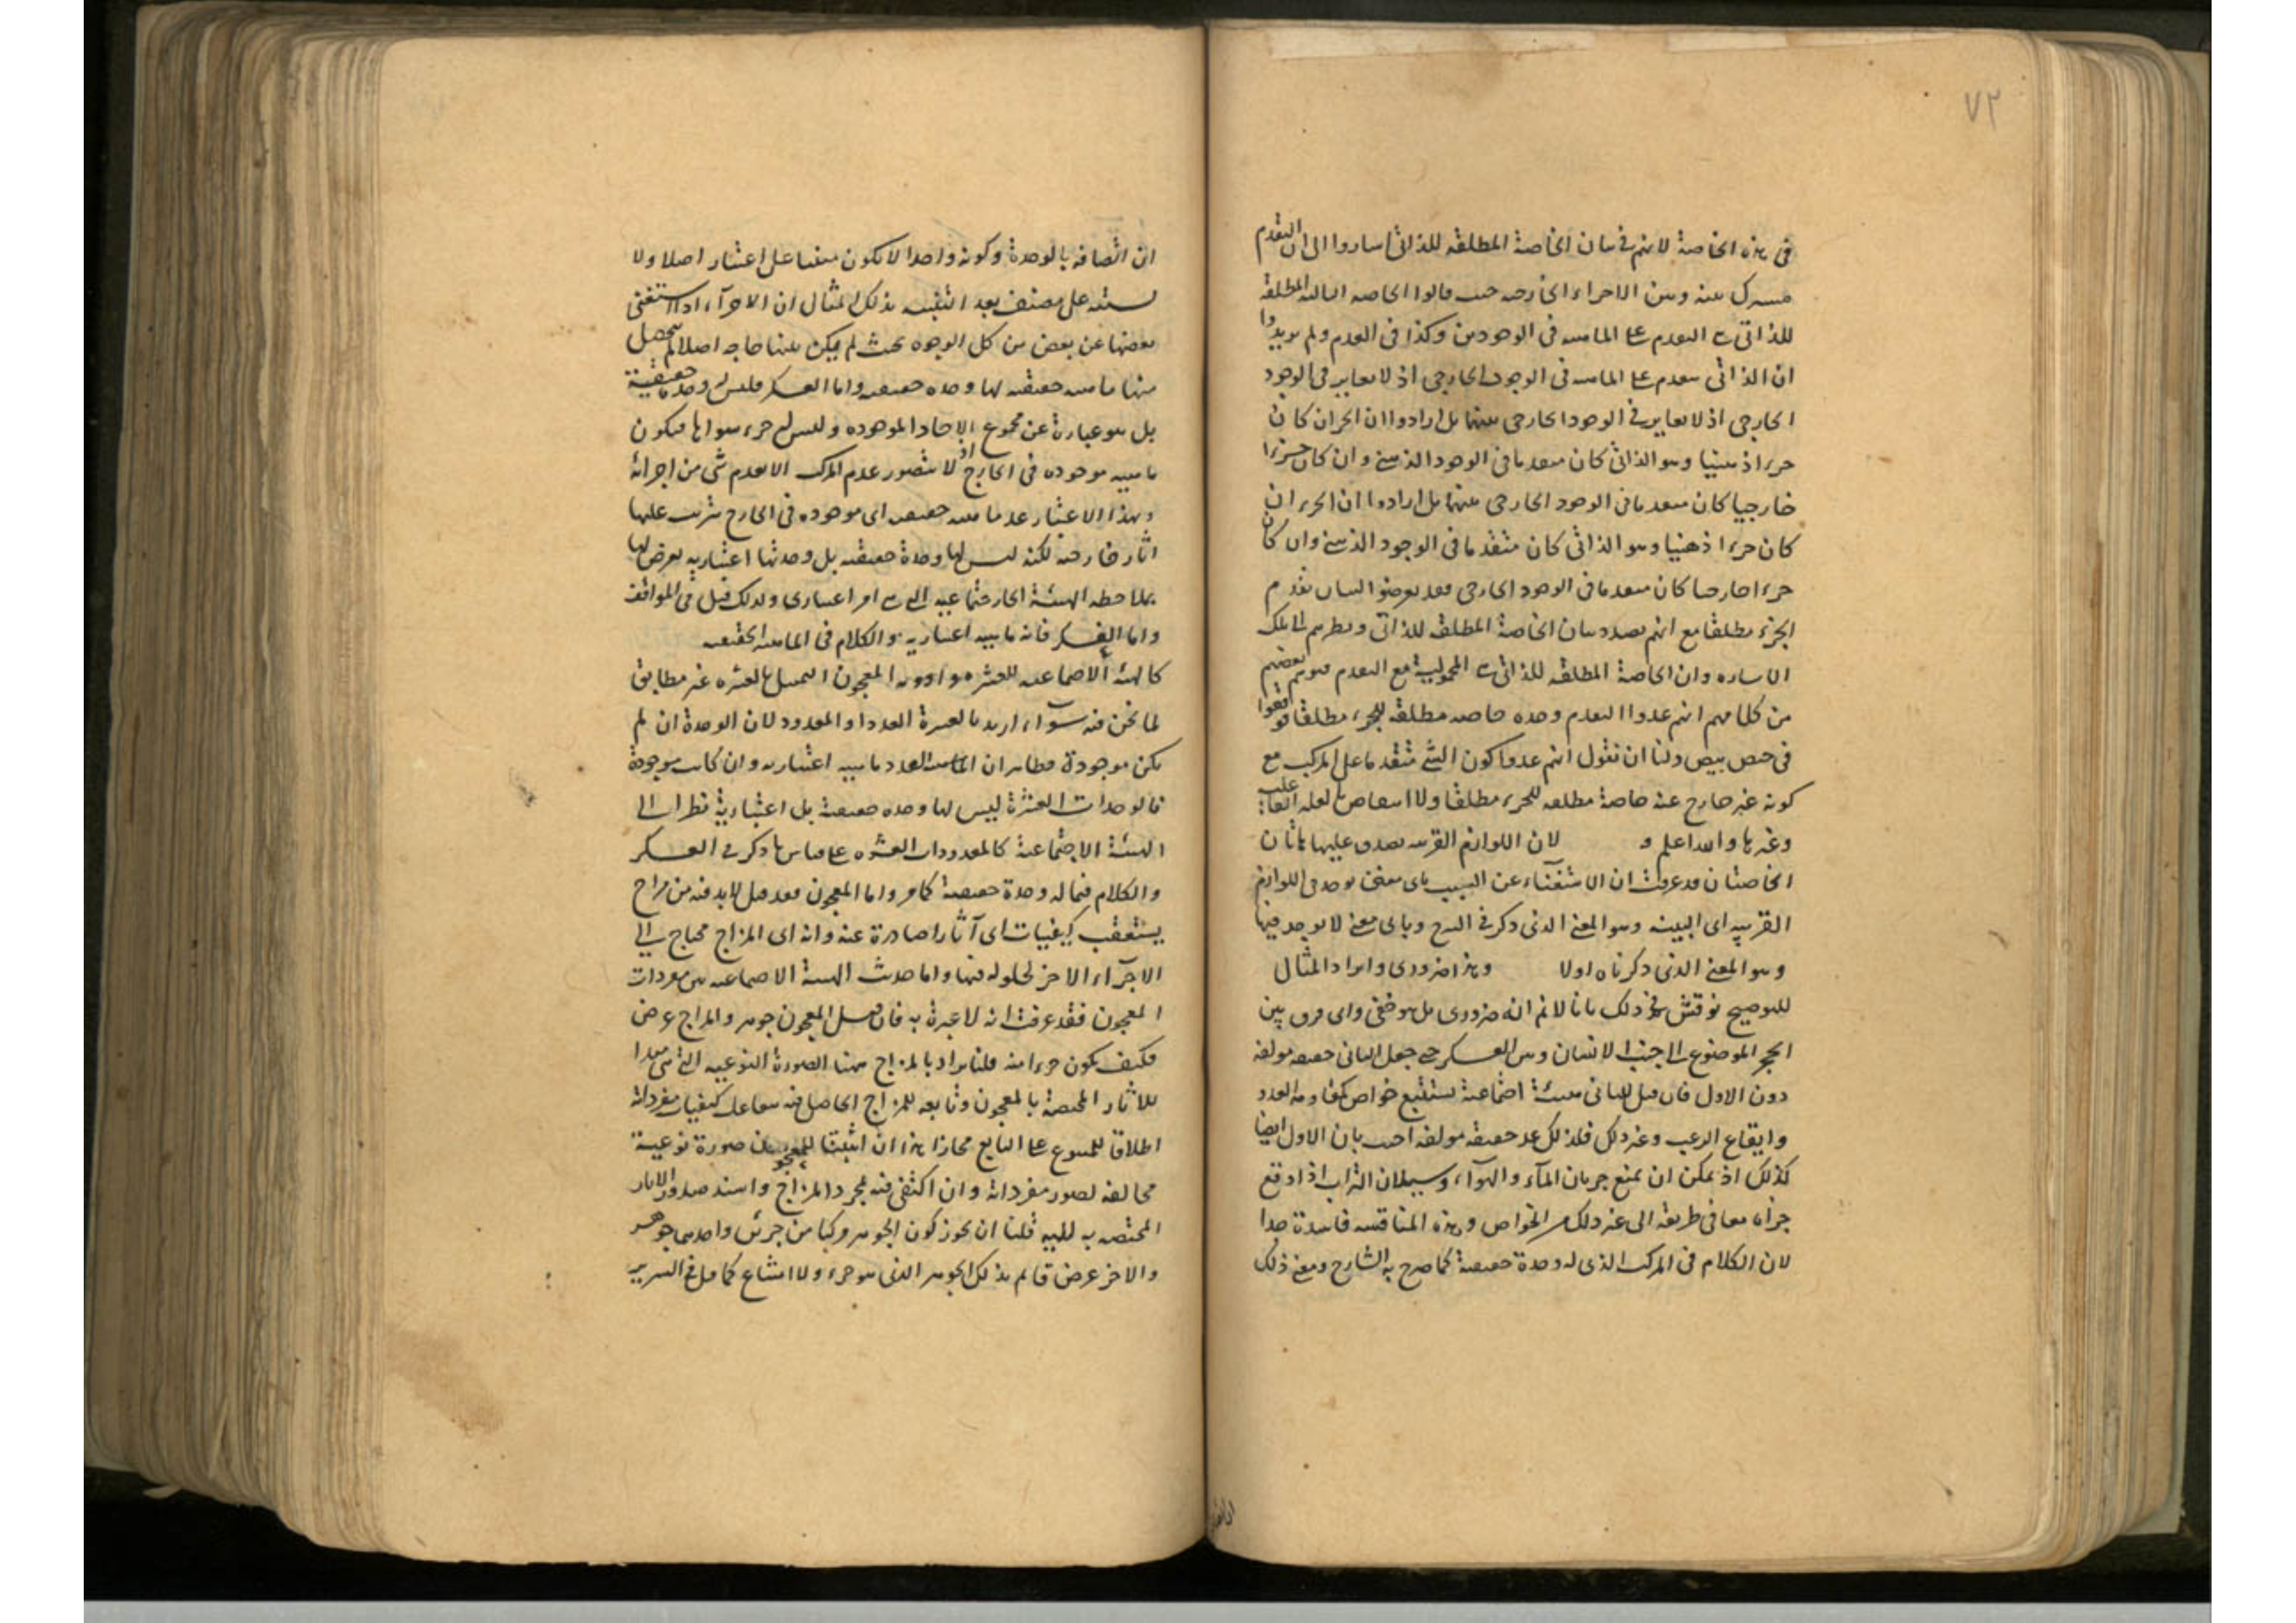 ٧٢
فى هذه الخاصة لانهم فى بيان الخاصة المطلقه للذاتى اساروا الى ان التقدم
مسرك بينه وبين الاجراء الخارجيه حيث قالوا الخاصه الثالثه المطلقة
للذاتى هى التعدم على الماهيه فى الوجودين وكذا فى العدم ولم يريدوا
ان الذاتى متعدم على الماهيه فى الوجود الخارجى اذ لا تغاير فى الوجود
الخارجى اذ لا تغاير فى الوجود الخارجى بينهما بل ارادوا ان الجزء ان كان
جزءا ذهنيا وهو الذاتى كان متقدما فى الوجود الذهنى وان كان جزءا
خارجيا كان متقدما فى الوجود الخارجى بينهما بل ارادوا ان الجزء ان
كان جزءا ذهنيا وهو الذاتى كان متقدما فى الوجود الذهنى وان كان
جزءا خارجيا كان متقدما فى الوجود الخارجى فقد تعرضوا لبيان تقدم
الجزء مطلقا مع انهم بصدد بيان الخاصة المطلقه للذاتى ونظرهم الى تلك
الاساره وان الخاصة المطلقه للذاتى هى المحمولية مع التقدم فتوهم بعضهم
من كلامهم انهم عدوا التقدم وحده خاصه مطلقه للجزء مطلقا فوقعوا
فى حيص بيص ولنا ان نقول انهم عدوا كون الشئ متقدما على المركب مع
كونه غير خارج عنه خاصة مطلقه للجزء مطلقا ولا انتقاض بالعله الفاعلية
وغيرها والله اعلم و لان اللوازم القريبه يصدق عليها هاتان
الخاصتان قد عرفت ان الاستغناء عن السبب باى معنى يوجد فى اللوازم
القريبه اى البينه وهو المعنى الذى ذكر فى الشرح وباى معنى لا يوجد فيها
وهو المعنى الذى ذكرناه اولا وهذا ضرورى وايراد المثال
للتوضيح نوقش فى ذلك بانا لانم انه ضرورى بل هو خفى واى فرق بين
الحجر الموضوع الى جنب الانسان وبين العسكر حتى جعل الثانى حقيقه مولفه
دون الاول فان قيل للثانى هيئة اجتماعية تستتبع خواص كمقاومه العدو
وايقاع الرعب وغير ذلك فلذلك عد حقيقه مولفه اجيب بان الاول ايضا
كذلك اذ يمكن ان يمنع جريان الماء والهواء وسيلان التراب اذا وقع
جزأه معا فى طريقه الى غير ذلك من الخواص وهذه المناقشه فاسدة جدا
لان الكلام فى المركب الذى له وحدة حقيقية كما صرح به الشارح ومعنى ذلك
ان اتصافه بالوحدة وكونه واحدا لا يكون مبنيا على اعتبار اصلا ولا
يشتبه على مصنف بعد التنبيه بذلك المثال ان الاجزاء اذا استغنى
بعضها عن بعض من كل الوجوه بحيث لم يكن بينها حاجه اصلا لم يحصل
منها ماهيه حقيقيه لها وحده حقيقيه واما العسكر فليس له وحدة حقيقية
بل هو عبارة عن مجموع الاحاد الموجوده وليس له جزء سواها فيكون
ماهيه موجوده فى الخارج اذ لا يتصور عدم المركب الا بعدم شئ من اجزائه
وبهذا الاعتبار عد ماهيه حقيقيه اى موجوده فى الخارج يترتب عليها
اثار خارجيه لكنه ليس لها وحدة حقيقيه بل وحدتها اعتباريه يعرض لها
بملاحظه الهيئة الاجتماعيه التى هى امر اعتبارى ولذلك قيل فى المواقف
واما العسكر فانه ماهيه اعتباريه والكلام فى الماهيه الحقيقيه
كالهيئه الاجتماعيه للعشره او ادويه المعجون التمثيل بالعشره غير مطابق
لما نحن فيه سواء اريد بالعشرة العدد او المعدود لان الوحدة ان لم
يكن موجودة فظاهر ان العدد ماهيه اعتباريه وان كانت موجودة
فالوحدات العشرة ليس لها وحده حقيقية بل اعتبارية نظرا الى
الهيئة الاجتماعية كالمعدودات العشره على قياس ما ذكر فى العسكر
والكلام فيما له وحدة حقيقية كما مر واما المعجون فقد قيل لابد فيه من مزاج
يستعقب كيفيات اى آثارا صادرة عنه وانه اى المزاج محتاج الى
الاجزاء الاخر لحلوله فيها واما حدث الهيئة الاجتماعيه من مفردات
المعجون فقد عرفت انه لا عبرة به فان قيل المعجون جوهر والمزاج عرض
فكيف يكون جزءا منه قلنا يراد بالمزاج ههنا الصورة النوعيه التى هى مبدا
للاثار المختصة بالمعجون وتابعه للمزاج الحاصل فيه بتفاعل كيفيات مفرداته
اطلاقا للمتبوع على التابع مجازا هذا ان اثبتنا للمعجون صورة نوعية
مخالفه لصور مفرداته وان اكتفى فيه بمجرد المزاج واسند صدور الاثار
المختصه به اليه قلنا ان نجوز كون الجوهر مركبا من جزئين واحدهما جوهر
والاخر عرض قائم بذلك الجوهر الذى هو جزء ولا امتناع كما قيل فى السرير